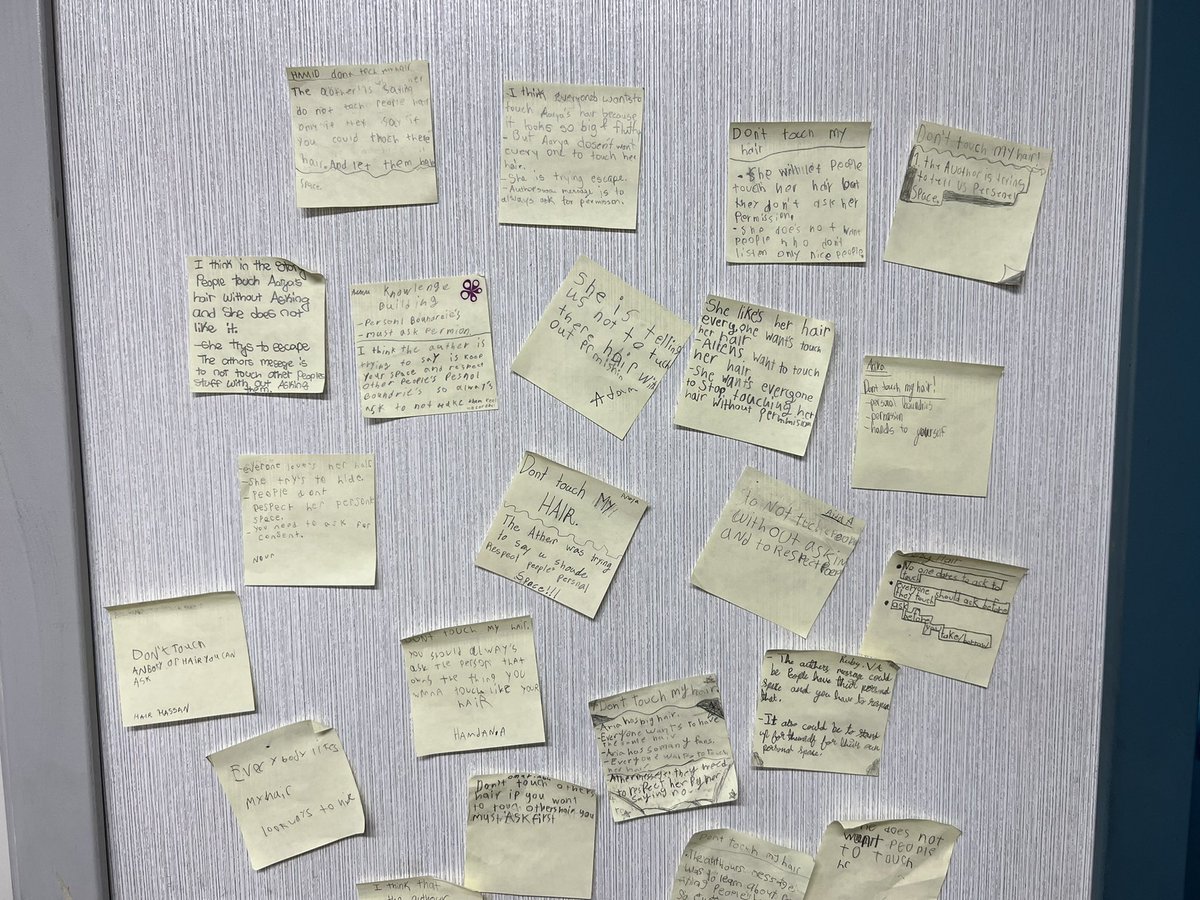 HAMID dont tech my hair
The auther is saying
do not tach people hair
only if they say it
you could thoch there
hair. And let them
space.
I think everyones wants to
touch Aarya's hair because
it looks so big & fluffy
- But Aarya dosent want
every one to touch her
hair.
- She is trying escape.
message is to
always ask for permisson.
Don't touch my
hair
• She will let people
touch her hair but
they don't ask her
Permission.
- She does not want
people who don't
listen only nice people
Don't touch my hair!
the Author is trying
to tell us Personel
Space.
I think in the story
People touch Aarya's
hair without Asking
and She does not
like it.
- She trys to escape
The athors message is
to not touch other peoples
stuff with out Asking
them.
Knowledge
Building
- Personl Boundreie's
- must ask Permion
I think the author is
trying to say is keep
your space and respect
other People's Peshol
Boundrie's so alway's
ask to not make them feel
She is telling
us not to tuch
there hair with
out Permishin
Adam
She like's her hair
every one want's touch
her hair
- Aliens want to touch
her hair
- She wants everyone
to stop touching her
hair without Permission
Dont touch my hair!
- personal boundries
- permission
- hands to yourself
- everone love's her hair
- she try's to hide
- people dont
respect her personl
space.
- you need to ask for
consent.
NOUR
Dont touch MY
HAIR.
The Ather was trying
to say w shoude
Respect people personal
Space!!!
Avia A
to Not tuch
without askin
and to Respect
Hair
• No one dares to ask to
touch
• Everyone should ask before
they touch
• ask
before
you take/borrow
DON'T TOUCH
ANBODY OF HAIR YOU CAN
ASK
HAIR HASSAN
DONT TOUCH MY HAIR.
You should allway's
ask the person that
owns the thing you
wanna touch like your
hair
HAMDANIA
Dont touch my hair
- Aria has big hair.
- Everyone wants to have
the same hair
- Aria has so many fans.
- Everyone wants to touch
her hair
Ather message: they need
to respect her by her
saying no.
Ruby.V.A
- The authers message could
be People have their personal
space and you have to respect
that.
- It also could be to stand
up for themself for their own
personal space.
Every body likes
My hair
look wors to me
Don't touch others
hair if you want
to touch others hair you
must ASK first
Dont touch my hair
• The aithours message
was to learn about
People
She does not
want PEOPLE
TO TOUCH
hr
I think that
the authour